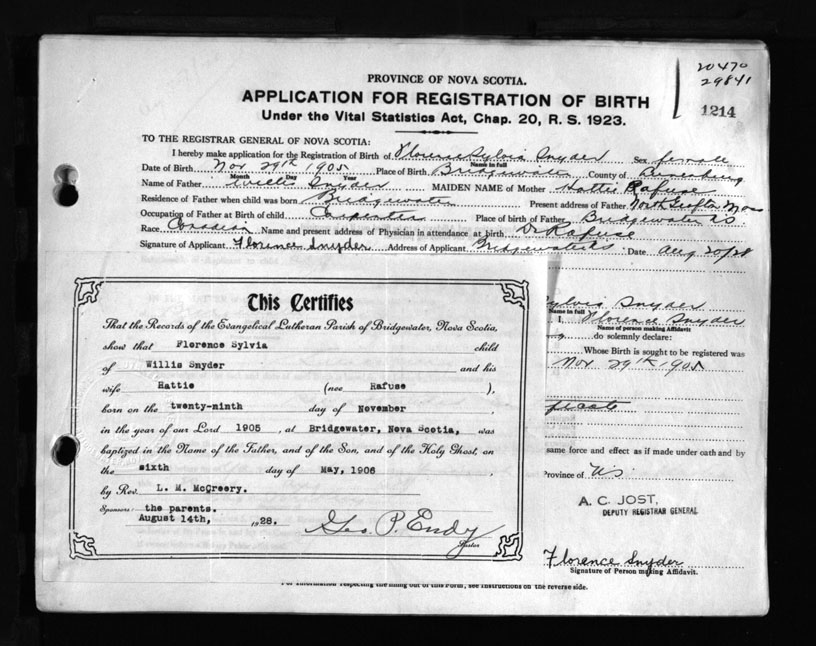 20470
29841
1214
PROVINCE OF NOVA SCOTIA.
APPLICATION FOR REGISTRATION OF BIRTH
Under the Vital Statistics Act, Chap. 20, R. S. 1923.
TO THE REGISTRAR GENERAL OF NOVA SCOTIA:
I hereby make application for the Registration of Birth of Florence Sylvia Snyder Sex female
Name in full
Date of Birth Nov 29th 1905 Place of Birth Bridgewater County of Lunenburg
Month Day Year
Name of Father Willis Snyder MAIDEN NAME of Mother Hattie Rafuse
Residence of Father when child was born Bridgewater Present address of Father North Grafton Mass
Occupation of Father at Birth of child Carpenter Place of birth of Father Bridgewater NS
Race Canadian Name and present address of Physician in attendance at birth Dr Rafuse
Signature of Applicant Florence Snyder Address of Applicant Bridgewater NS Date Aug 20/28
This Certifies
That the Records of the Evangelical Lutheran Parish of Bridgewater, Nova Scotia,
show that Florence Sylvia child
of Willis Snyder and his
wife Hattie (nee Rafuse ),
born on the twenty-ninth day of November
in the year of our Lord 1905 , at Bridgewater, Nova Scotia, was
baptized in the Name of the Father, and of the Son, and of the Holy Ghost, on
the sixth day of May, 1906 ,
by Rev. L. M. McCreery.
Sponsors: the parents.
August 14th, 1928. Geo. P. Endy
Pastor
Sylvia Snyder
Name in full
I, Florence Snyder
Name of person making Affidavit
do solemnly declare:
Whose Birth is sought to be registered was
Nov 29th 1905
facts
same force and effect as if made under oath and by
Province of NS
A. C. JOST,
DEPUTY REGISTRAR GENERAL
Florence Snyder
Signature of Person making Affidavit.
For information respecting the filling out of this Form, see instructions on the reverse side.